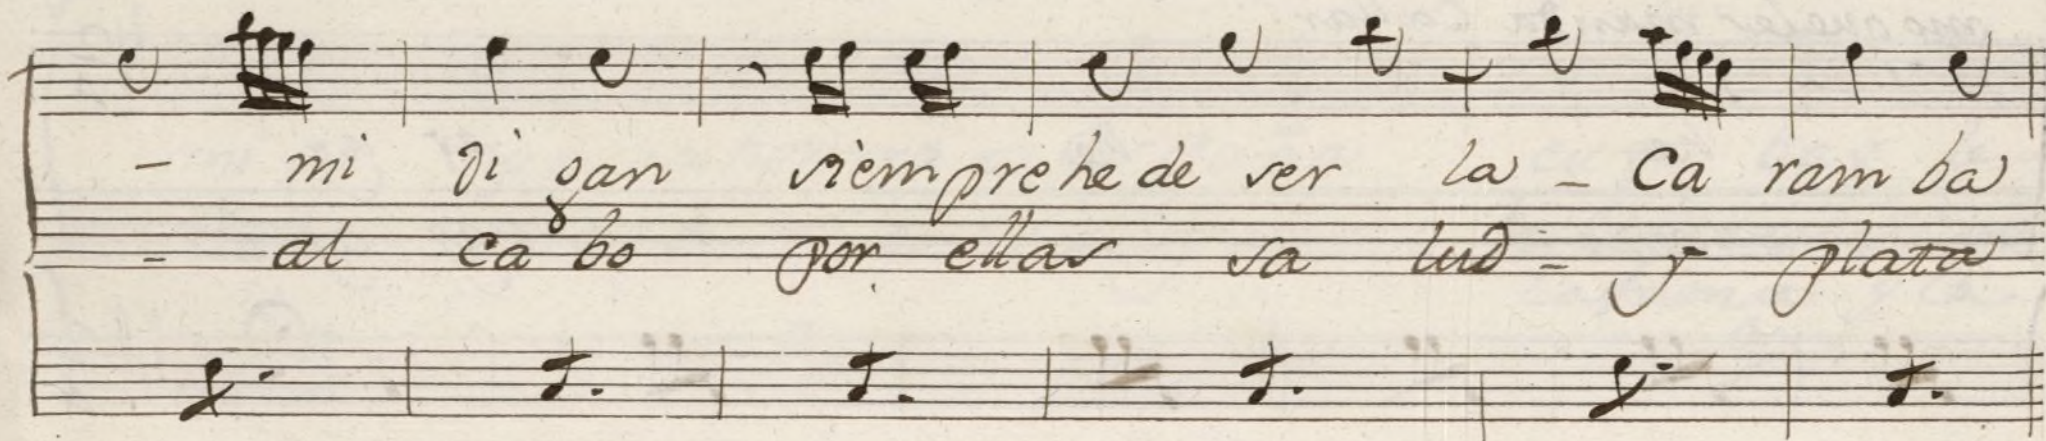 - mi di gan siem pre he de ser la - Ca ram ba
- al ca bo por ellas sa lud - y plata